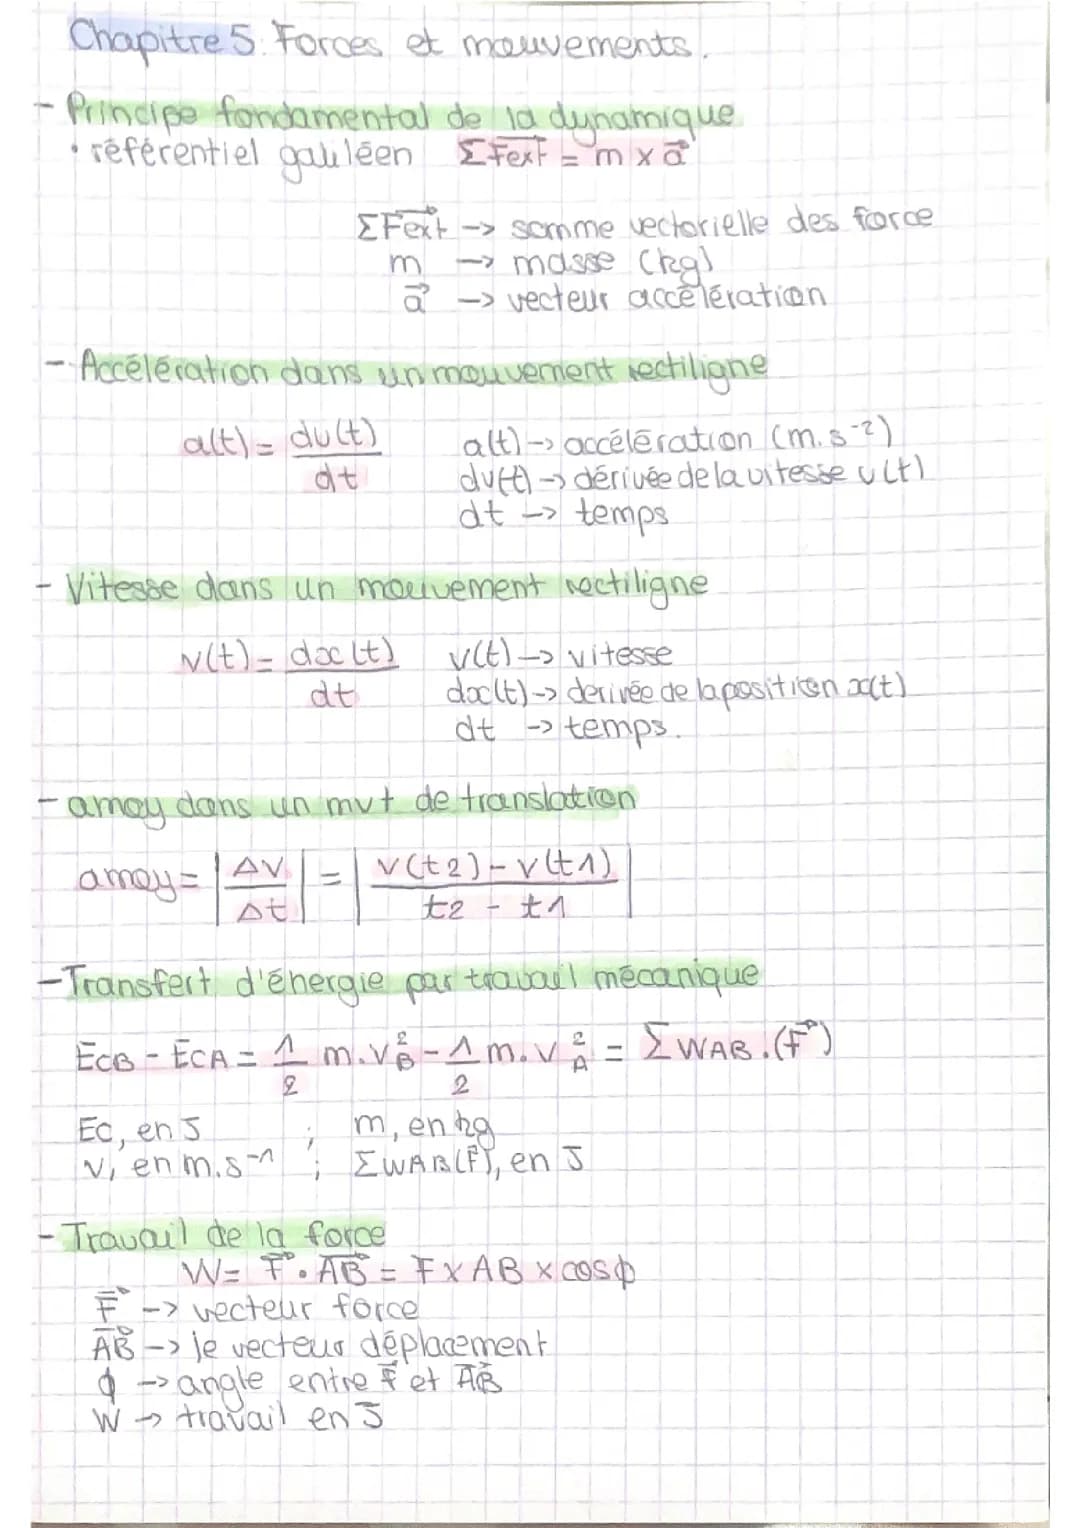 Chapitre 5. Forces et mouvements.
- Principe fondamental de la dynamique
• référentiel galiléen ΣFext = m x a
ΣFext -> somme vectorielle des force
m -> masse (kg)
a -> vecteur accélération
- Accélération dans un mouvement rectiligne
a(t) = dv(t)/dt
a(t) -> accélération (m.s⁻²)
dv(t) -> dérivée de la vitesse v(t)
dt -> temps
- Vitesse dans un mouvement rectiligne
v(t) = dx(t)/dt
v(t) -> vitesse
dx(t) -> derivée de la position x(t)
dt -> temps.
- amoy dans un mvt de translation
amoy = |Δv/Δt| = |v(t2) - v(t1)/t2 - t1|
- Transfert d'énergie par travail mécanique
EcB - EcA = 1/2 m.v²B - 1/2 m.v²A = ΣWAB.(F)
Ec, en J ; m, en kg
v, en m.s⁻¹ ; ΣWAB(F), en J
- Travail de la force
W = F . AB = F x AB x cosϕ
F -> vecteur force
AB -> le vecteur déplacement
ϕ -> angle entre F et AB
W -> travail en J